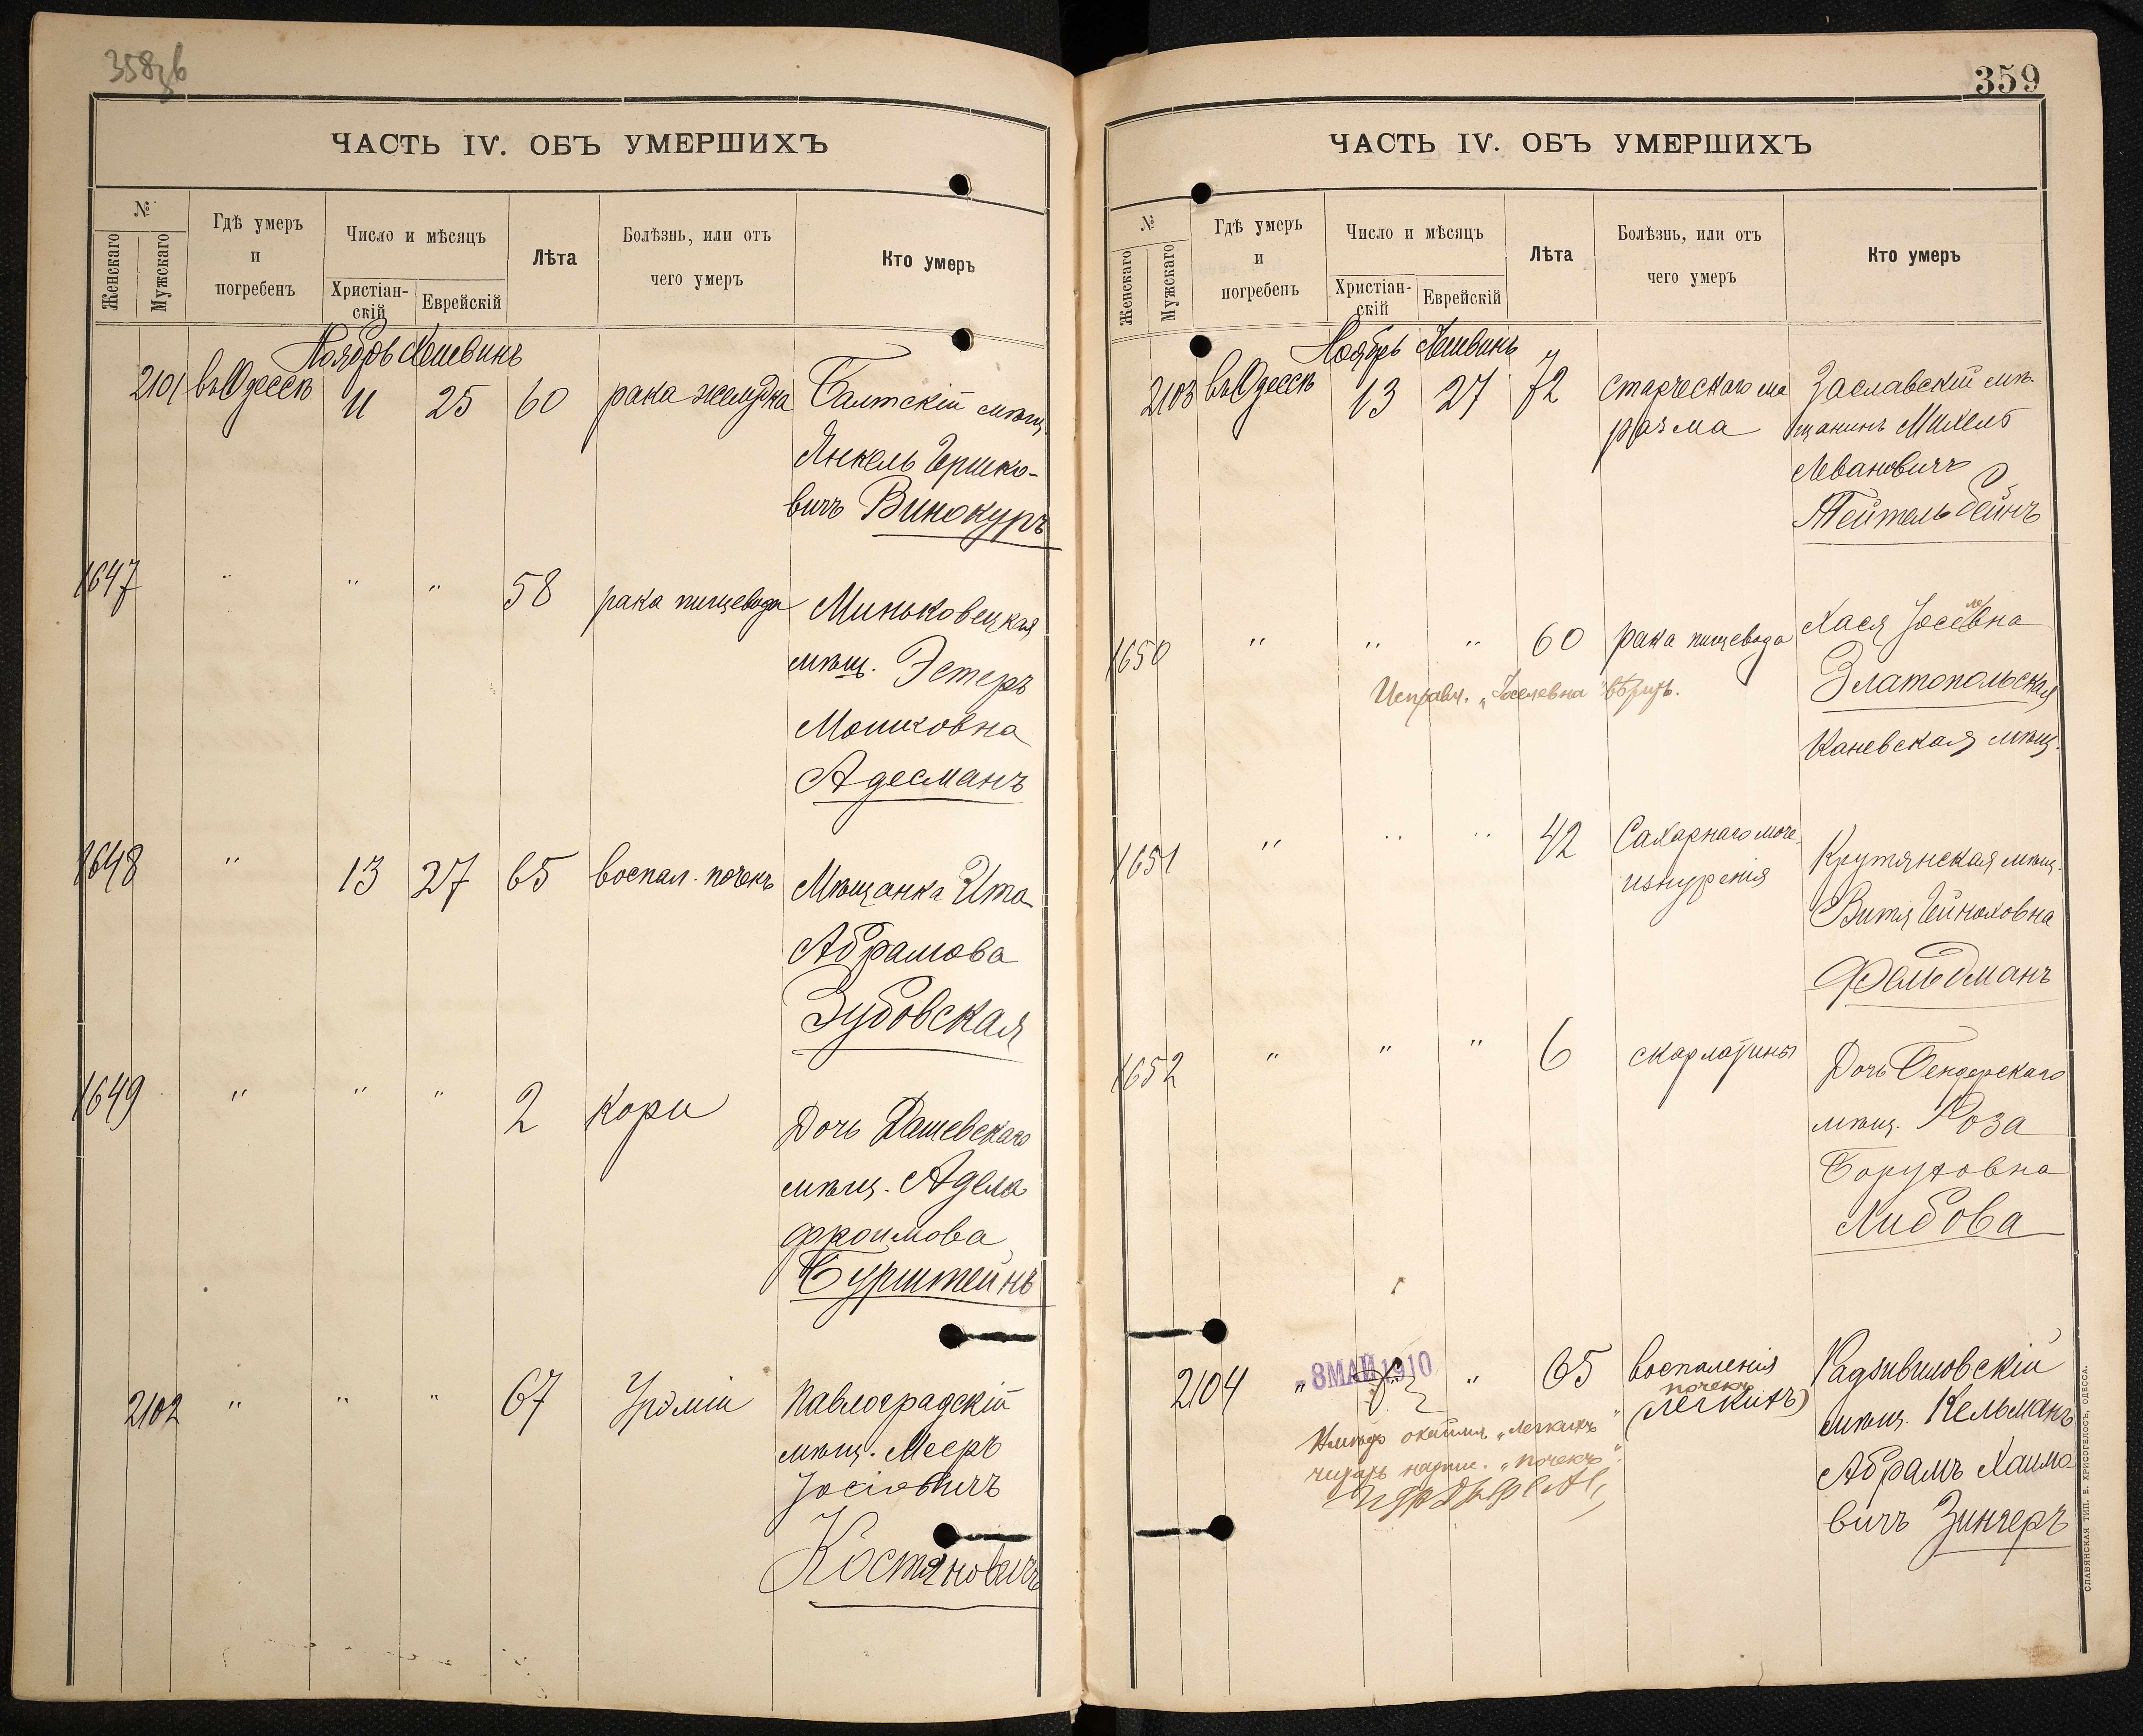 358 зв
ЧАСТЬ IV. ОБЪ УМЕРШИХЪ
№
Женскаго
Мужскаго
Гдѣ умеръ
и
погребенъ
Число и мѣсяцъ
Христіан-
скій
Еврейскій
Лѣта
Болѣзнь, или отъ
чего умеръ
Кто умеръ
Ноябрь Хешвинъ
2101 въ Одессѣ 11 25 60 рака желудка Балтскій мѣщ.
Янкель Гершко-
вичъ Винокуръ
1647 " " " 58 рака пищевода Миньковецкая
мѣщ. Эстеръ
Мошковна
Адесманъ
1648 " 13 27 65 воспал. почекъ Мѣщанка Ита
Абрамова
Зубовская
1649 " " " 2 Кори Дочь Дашевскаго
мѣщ. Адела
Фроимова
Бурштейнъ
2102 " " " 67 Уреміи Павлоградскій
мѣщ. Мееръ
Іосіовичъ
Костяновичъ
359
ЧАСТЬ IV. ОБЪ УМЕРШИХЪ
№
Женскаго
Мужскаго
Гдѣ умеръ
и
погребенъ
Число и мѣсяцъ
Христіан-
скій
Еврейскій
Лѣта
Болѣзнь, или отъ
чего умеръ
Кто умеръ
Ноябрь Хешвинъ
2103 въ Одессѣ 13 27 72 старческаго ма
разма
Заславскій мѣ-
щанинъ Михель
Левановичъ
Тейтельбеймъ
1650 " " " 60 рака пищевода Хася Іоселевна
Златопольская
Каневская мѣщ.
Исправл. „Іоселевна" вѣрить.
1651 " " " 42 Сахарнаго моче-
изнуренія
Крутянская мѣщ.
Витя Гейноховна
Фельдманъ
1652 " " " 6 скарлатины Дочь Бендерскаго
мѣщ. Роза
Боруховна
Либова
2104 " 8 МАЙ 1910 " 65 воспаленія
почекъ
(легкихъ)
Радзивиловскій
мѣщ. Кельманъ
Абрамъ Хаимо-
вичъ Зингеръ
„легкихъ"
читать надпис. „почекъ".
СЛАВЯНСКАЯ ТИП. Е. ХРИСОГЕЛОСЪ, ОДЕССА.